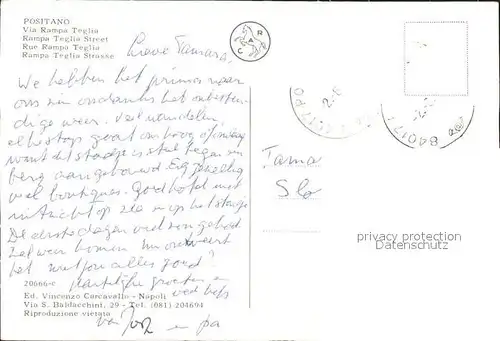 POSITANO
Via Rampa Teglia
Rampa Teglia Street
Rue Rampa Teglia
Rampa Teglia Strasse
C A R
Lieve Tamara,
We hebben het prima naar
ons zin ondanks het onbesten-
dige weer. Veel wandelen,
elke stap gaat omhoog of omlaag
want dit stadje is steil tegen een
berg aangebouwd. Erg gezellig
veel boutiques. Goed hotel met
uitzicht op zee en op het stadje
De eerste dagen van
komen
het met jou alles goed?
hartelijke groeten en
veel liefs
van en pa
84017
Tama
Slo
privacy protection
Datenschutz
20666-c
Ed. Vincenzo Carcavallo - Napoli
Via S. Baldacchini, 29 - Tel. (081) 204694
Riproduzione vietata